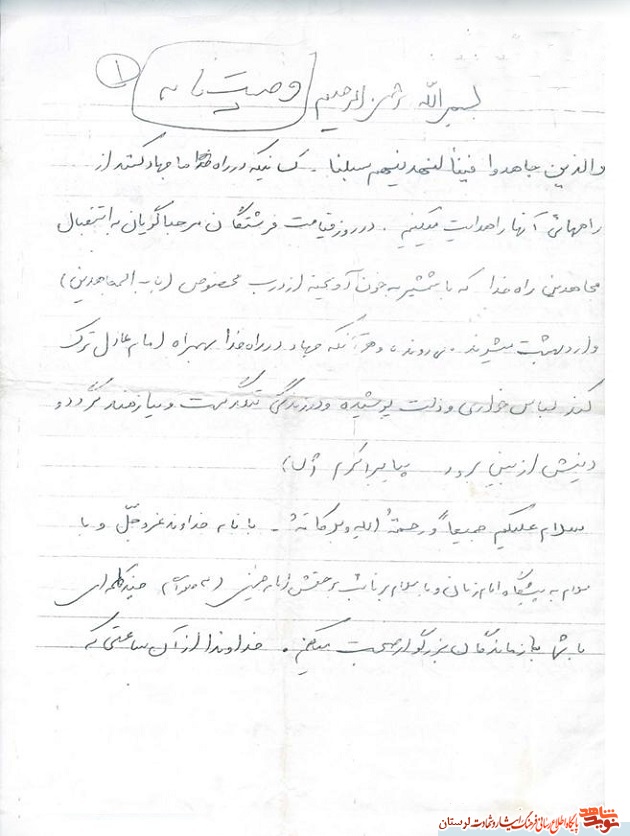 ۱
وصیت نامه
بسم الله الرحمن الرحیم
والذین جاهدوا فینا لنهدینهم سبلنا . کسانیکه در راه خدا ما جهاد کنند از
راههائی آنها را هدایت میکنیم . در روز قیامت فرشتگان مرحبا گویان به استقبال
مجاهدین راه خدا که با شمشیر به خون آویخته از درب مخصوص (باب المجاهدین)
وارد بهشت میشوند می روند و هر آنکه جهاد در راه خدا بهمراه امام عادل ترک
کند لباس خواری و ذلت پوشیده و در زندگی تنگدست و نیازمند گردد و
دینش از بین برود پیامبر اکرم (ص)
سلام علیکم جمیعاً و رحمةُ الله و برکاتهُ . با نام خداوند عزوجلّ و با
سلام به پیشگاه امام زمان و با سلام بر نائب برحقش امام خمینی چند کلمه ای
با شما بازماندگان بزرگوار صحبت میکنم . خداوندا از آن ساعتی که
نوید شاهد
پایگاه اطلاع رسانی فرهنگ ایثار و شهادت لرستان